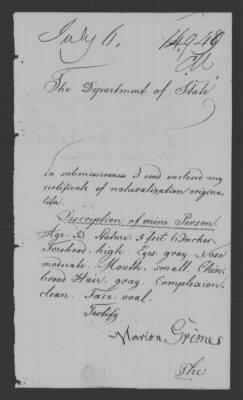 July 6. 14949
The Department of State
in submissiveness I send enclosed my
certificate of naturalization origina-
liter.
Discription of mine Person.
Age. 53 Stature. 5 feet 6 Inches.
Forehead. high. Eyes. gray. Nose
moderate. Mouth. small. Chin.
broad Hair. gray. Complexion.
clean. Face. oval.
Testify
Marion Grimes
The